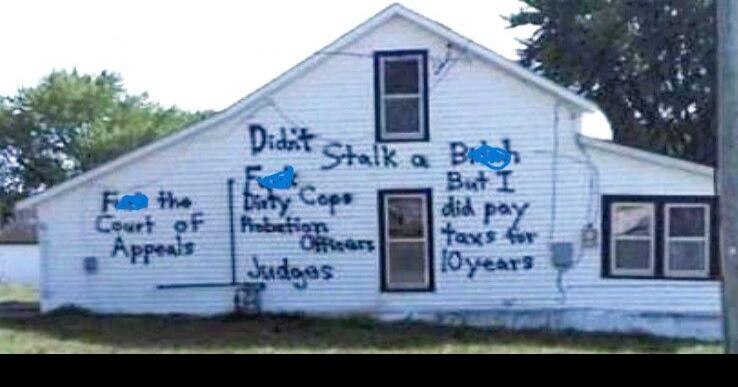 Didn't Stalk a
the
Court of
Appeals
Dirty Cops
Probation
Officers
Judges
But I
did pay
taxs for
10 years